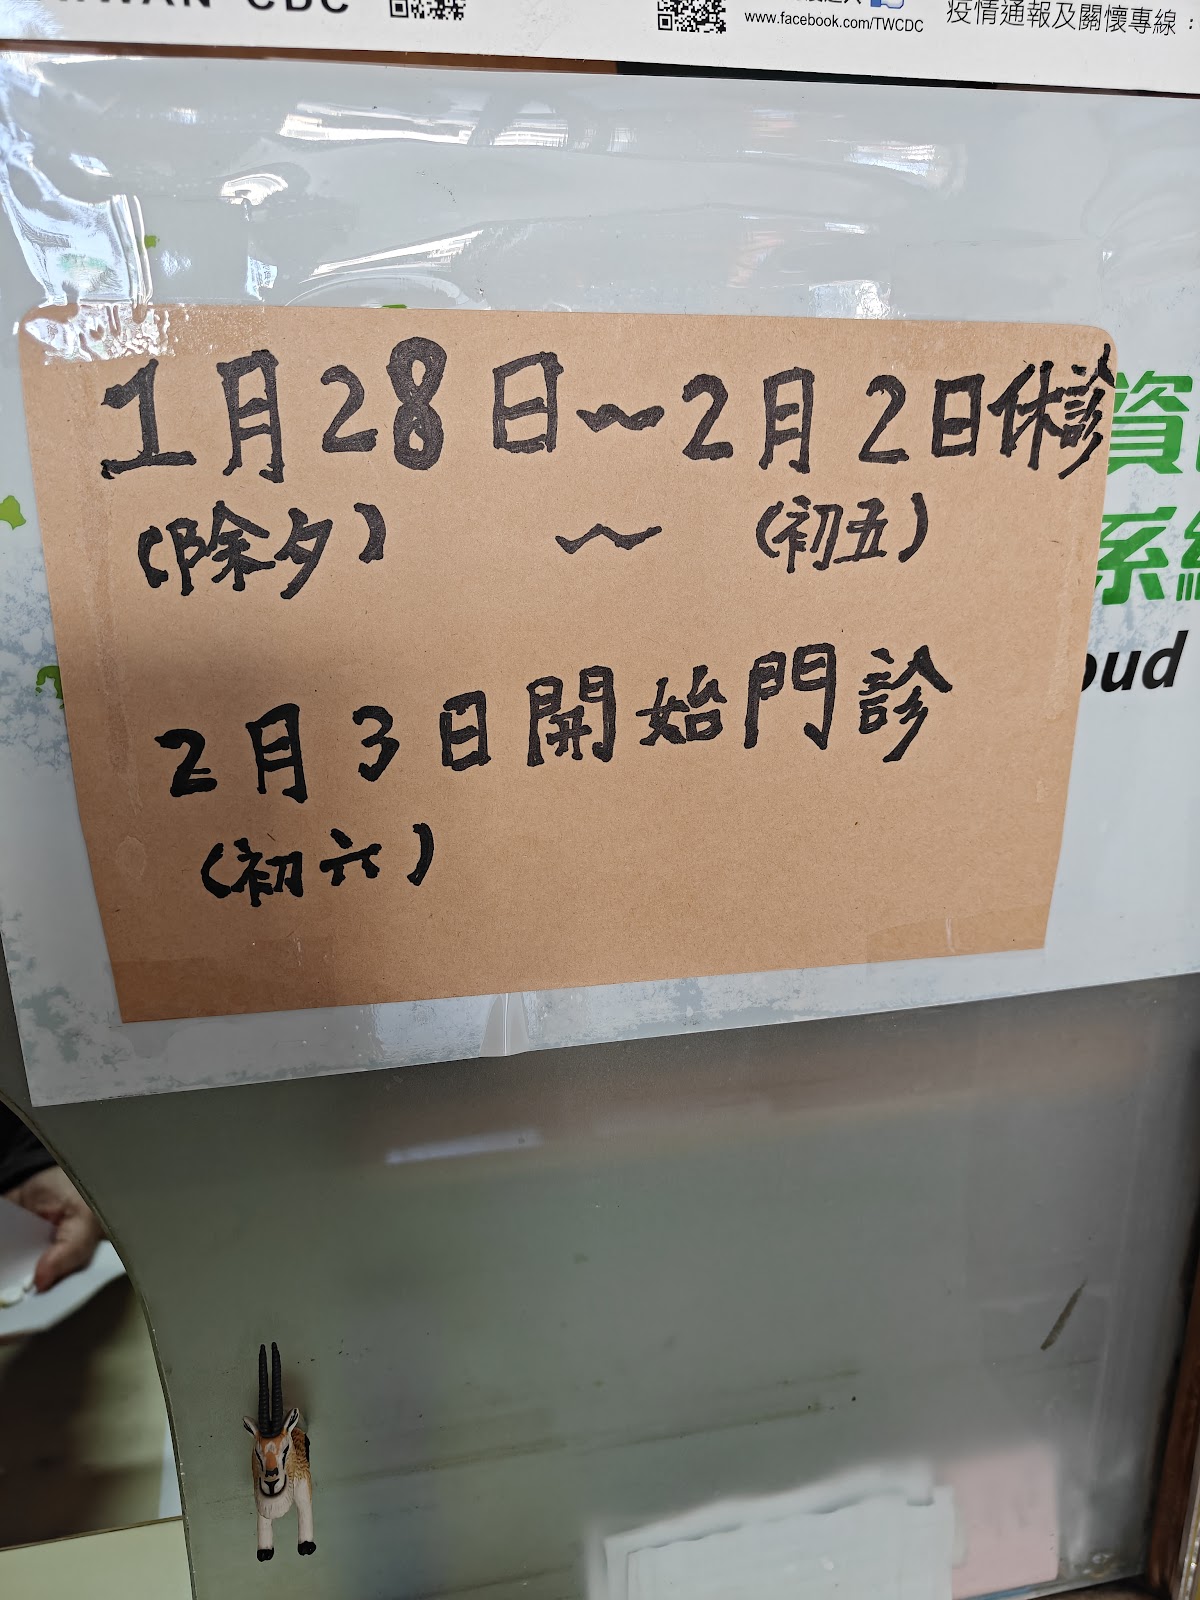 CDC
www.facebook.com/TWCDC
疫情通報及關懷專線：
1月28日～2月2日休診
(除夕) ～ (初五)
2月3日開始門診
(初六)
資
系統
oud